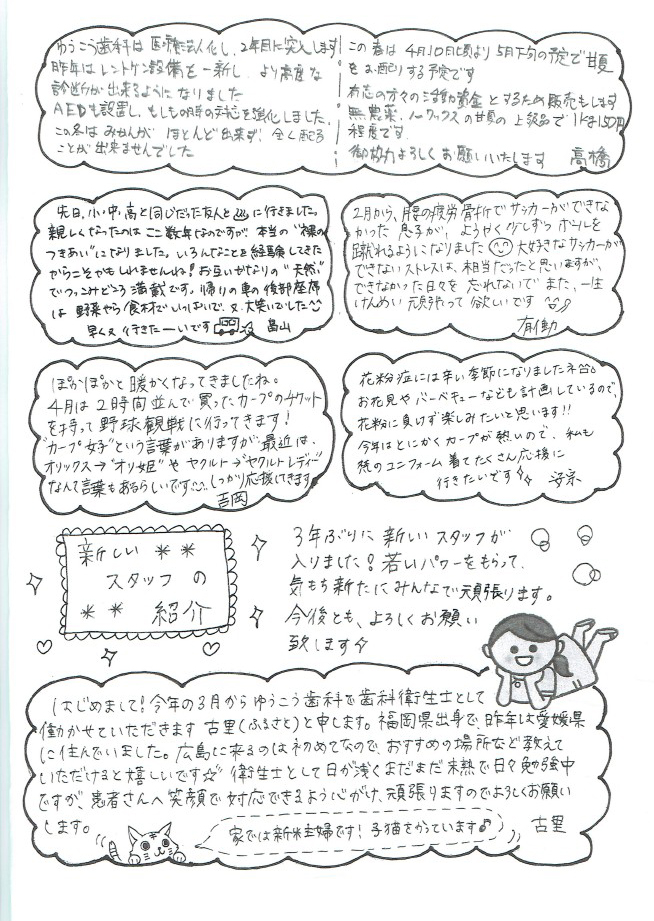 ゆうこう歯科は医療法人化し、2年目に突入します
昨年はレントゲン設備を一新し、より高度な
診断が出来るようになりました
AEDも設置し、もしもの時の対応を強化しました。
この冬はみかんがほとんど出来ず、全く配る
ことが出来ませんでした
この春は4月10日頃より5月下旬の予定で甘夏
をお配りする予定です
有志の方々の活動資金とするため販売もします
無農薬、ノーワックスの甘夏の上級品で1kg150円
程度です.
御協力よろしくお願いいたします 高橋
先日、小・中・高と同じだった友人と♨に行きました。
親しくなったのはここ数年なのですが、本当の“裸の
つきあい”になりました。いろんなことを経験してきた
からこそかもしれませんね!お互いかなりの“天然”
でつっこみどころ満載です。帰りの車の後部座席
は野菜やら食材でいっぱいで、又、大笑いでした
早く又行きたーいです 畠山
2月から、腰の疲労骨折でサッカーができな
かった息子が、ようやく少しずつボールを
蹴れるようになりました 大好きなサッカーが
できないストレスは、相当だったと思いますが、
できなかった日々を忘れないでまた、一生
けんめい頑張って欲しいです
有働
ぽかぽかと暖かくなってきましたね。
4月は2時間並んで買ったカープのチケット
を持って野球観戦に行ってきます!
“カープ女子”という言葉がありますが、最近は、
オリックス→“オリ姫”やヤクルト→“ヤクルトレディー”
なんて言葉もあるらしいです しっかり応援してきます
吉岡
花粉症には辛い季節になりましたネ。
お花見やバーベキューなども計画しているので、
花粉に負けず楽しみたいと思います!!
今年はとにかくカープが熱いので、私も
のユニフォーム着てたくさん応援に
行きたいです
新しい ＊＊
スタッフの
＊＊ 紹介
3年ぶりに新しいスタッフが
入りました!若いパワーをもらって、
気もち新たにみんなで頑張ります。
今後とも、よろしくお願い
致します
はじめまして!今年の3月からゆうこう歯科で歯科衛生士として
働かせていただきます古里(ふるさと)と申します。福岡県出身で、昨年は愛媛県
に住んでいました。広島に来るのは初めてなので、おすすめの場所など教えて
いただけると嬉しいです☆ 衛生士として日が浅くまだまだ未熟で日々勉強中
ですが、患者さんへ笑顔で対応できるよう心がけ、頑張りますのでよろしくお願い
します。
古里
家では新米主婦です!子猫をかっています♪